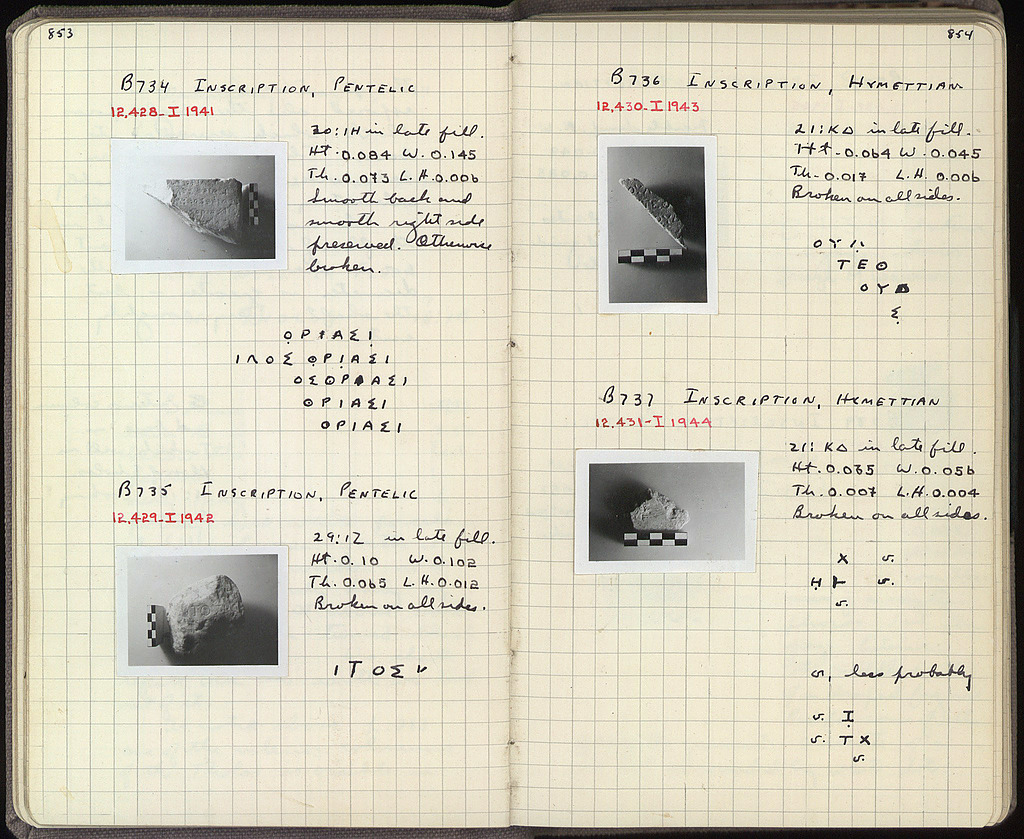 853
B734 INSCRIPTION, PENTELIC
12,428-I 1941
30:1H in late fill.
Ht. 0.084 W. 0.145
Th. 0.073 L.H. 0.006
Smooth back and
smooth right side
preserved. Otherwise
broken.
ΟΡΙΑΣΙ
ΙΛΟΣ ΘΡΙΑΣΙ
ΟΣΘΡΙΑΣΙ
ΘΡΙΑΣΙ
ΘΡΙΑΣΙ
B735 INSCRIPTION, PENTELIC
12,429-I 1942
29:IZ in late fill.
Ht. 0.10 W. 0.102
Th. 0.065 L.H. 0.012
Broken on all sides.
ΙΤΟΣ v
854
B736 INSCRIPTION, HYMETTIAN
12,430-I 1943
21:ΚΔ in late fill.
Ht. 0.064 W. 0.045
Th. 0.017 L.H. 0.006
Broken on all sides.
ΟΥ
ΤΕΘ
ΟΥ
Σ
B737 INSCRIPTION, HYMETTIAN
12,431-I 1944
21:ΚΔ in late fill.
Ht. 0.035 W. 0.056
Th. 0.007 L.H. 0.004
Broken on all sides.
Χ v.
Η v.
v.
or, less probably
v. Ι
v. Τ Χ
v.